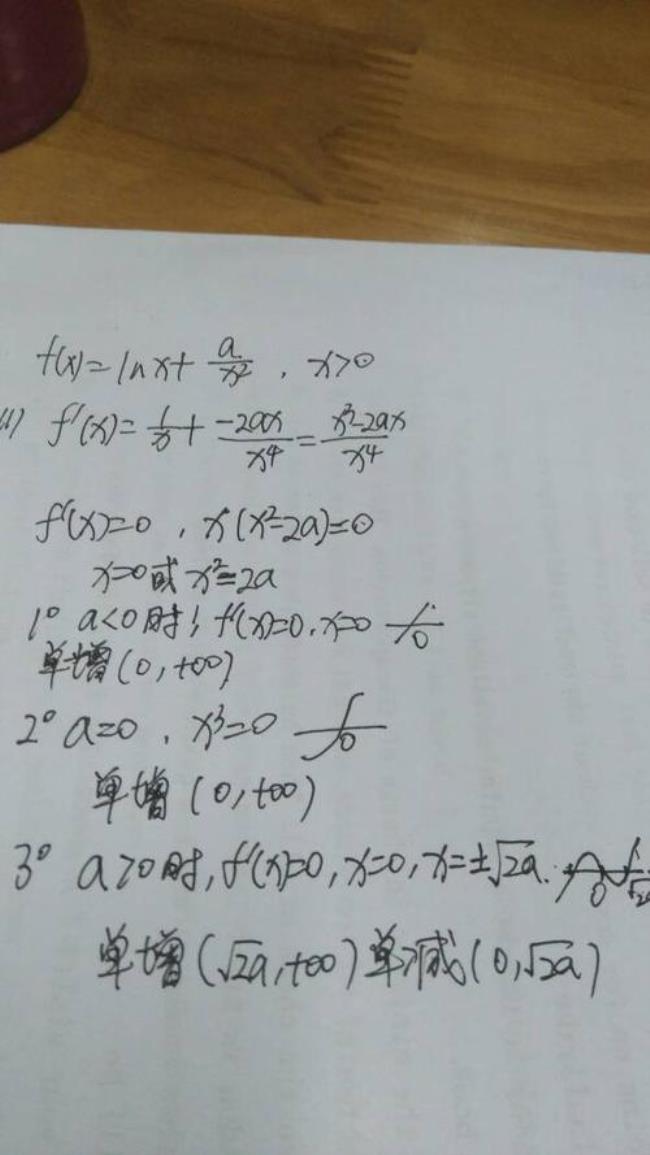 f(x)=lnx+a/x²，x>0
(1) f'(x)=1/x+(-2ax)/x⁴=(x³-2ax)/x⁴
f'(x)=0，x(x²-2a)=0
x=0或x²=2a
1° a<0时，f'(x)=0，x=0 0
单增(0,+∞)
2° a=0，x³=0 0
单增(0,+∞)
3° a>0时，f'(x)=0，x=0，x=±√2a. 0 √2a
单增(√2a,+∞)单减(0,√2a)